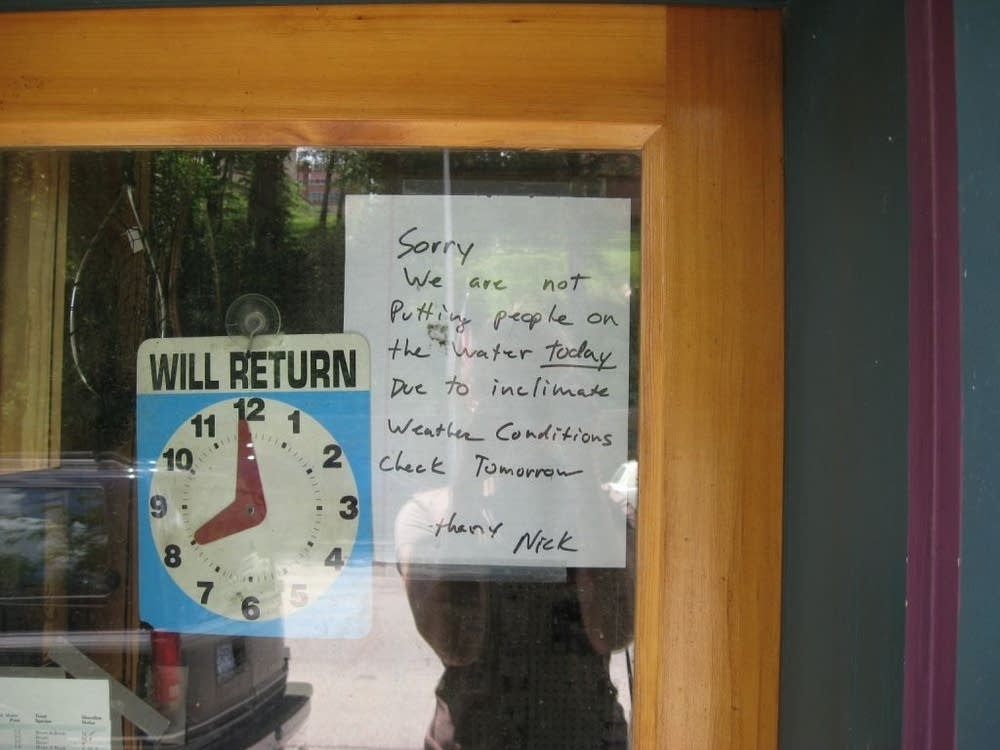 WILL RETURN
12
1
2
3
4
5
6
7
8
9
10
11
Sorry
We are not
Putting people on
the water today
Due to inclimate
Weather Conditions
Check Tomorrow
Nick